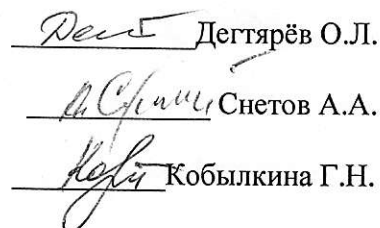 Дегтярёв О.Л.
Снетов А.А.
Кобылкина Г.Н.